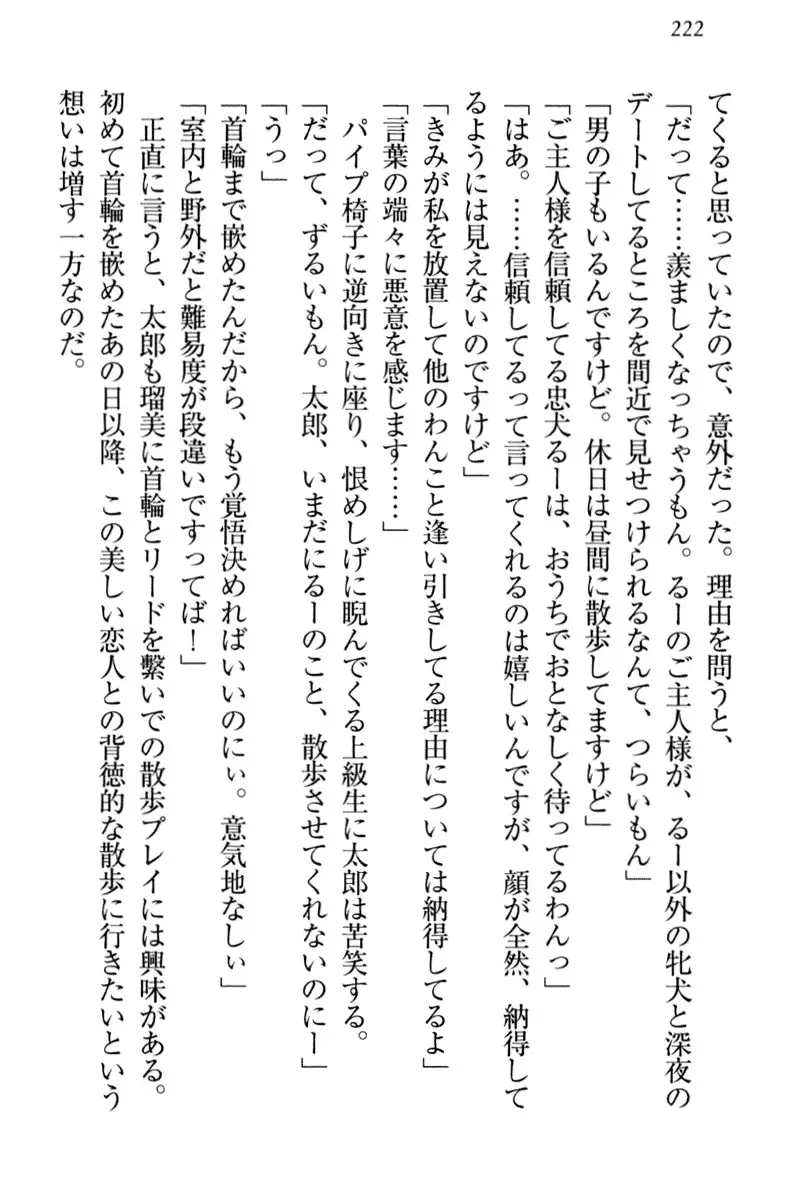 222
てくると思っていたので、意外だった。理由を問うと、
「だって……羨ましくなっちゃうもん。るーのご主人様が、るー以外の牝犬と深夜の
デートしてるところを間近で見せつけられるなんて、つらいもん」
「男の子もいるんですけど。休日は昼間に散歩してますけど」
「ご主人様を信頼してる忠犬るーは、おうちでおとなしく待ってるわんっ」
「はあ。……信頼してるって言ってくれるのは嬉しいんですが、顔が全然、納得して
るようには見えないのですけど」
「きみが私を放置して他のわんこと逢い引きしてる理由については納得してるよ」
「言葉の端々に悪意を感じます……」
パイプ椅子に逆向きに座り、恨めしげに睨んでくる上級生に太郎は苦笑する。
「だって、ずるいもん。太郎、いまだにるーのこと、散歩させてくれないのにー」
「うっ」
「首輪まで嵌めたんだから、もう覚悟決めればいいのにぃ。意気地なしぃ」
「室内と野外だと難易度が段違いですってば！」
正直に言うと、太郎も瑠美に首輪とリードを繋いでの散歩プレイには興味がある。
初めて首輪を嵌めたあの日以降、この美しい恋人との背徳的な散歩に行きたいという
想いは増す一方なのだ。